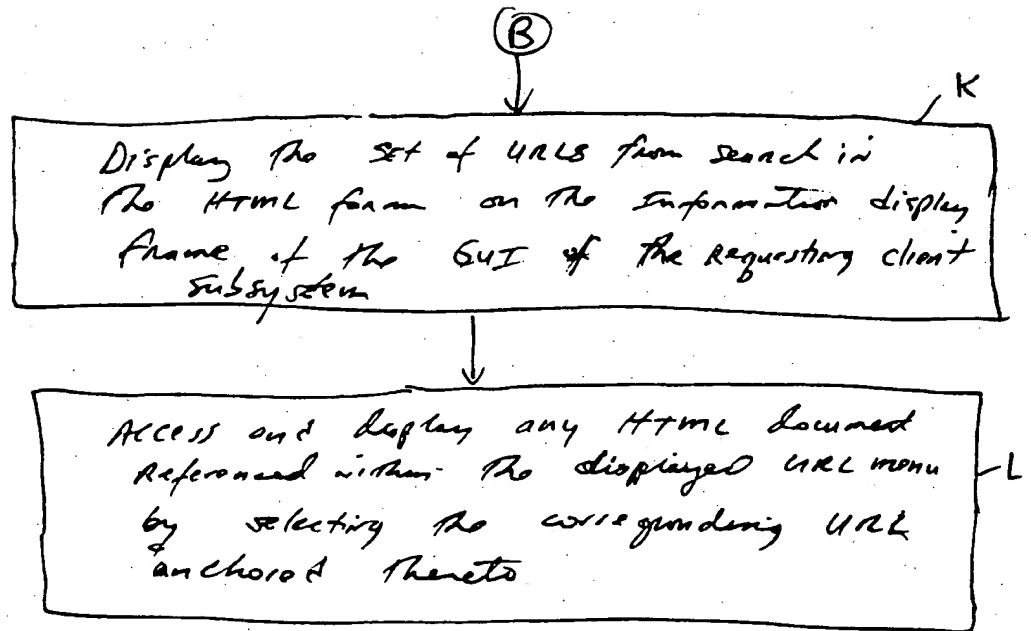 B
K
Display the set of URLs from search in
the HTML form on the Information display
frame of the GUI of the Requesting client
subsystem
Access and display any HTML document
Referenced within the displayed URL menu
L
by selecting the corresponding URL
anchored thereto